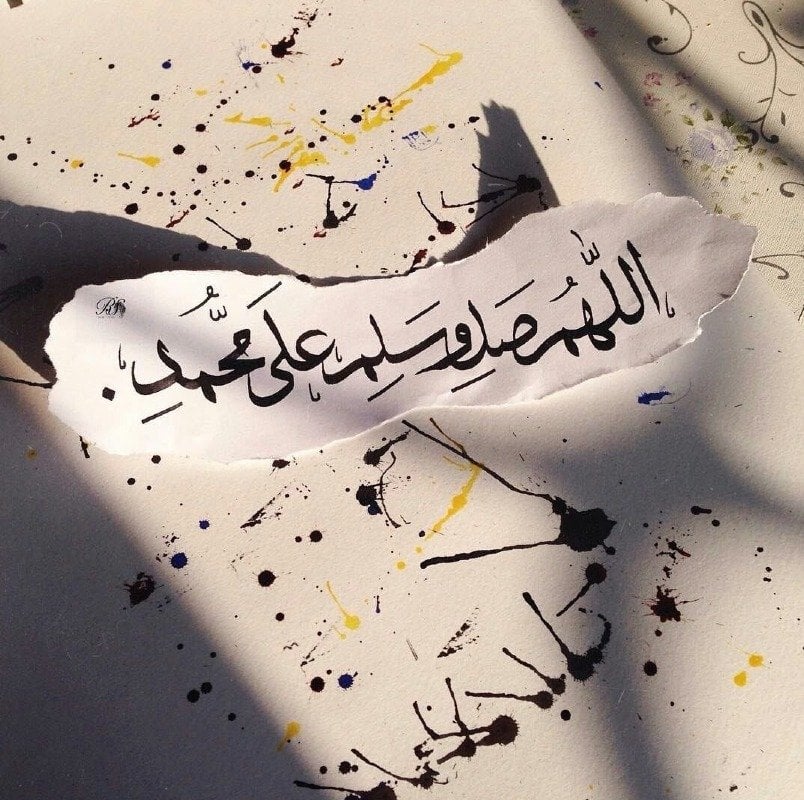 اللّٰهُم صَلِ و سَلِم علىَ محُمَّدِ .